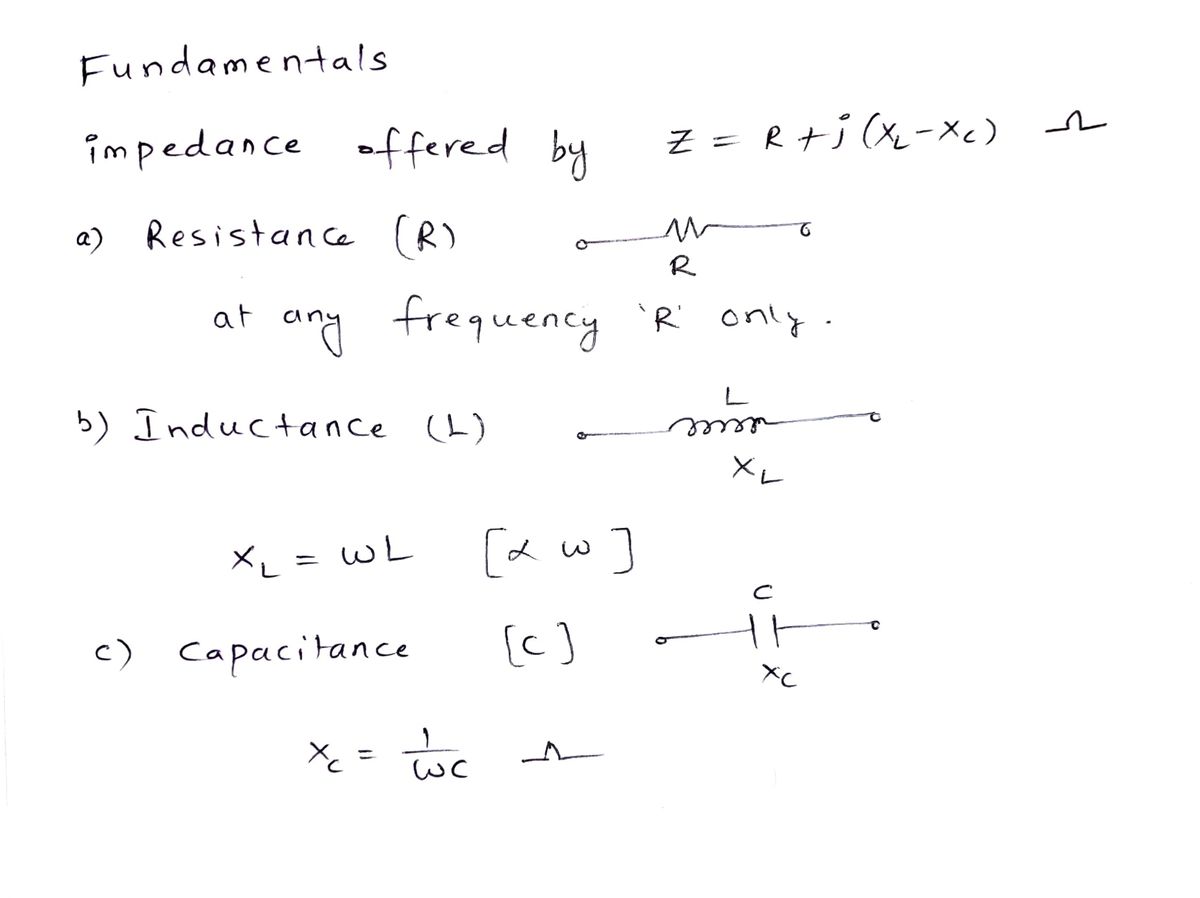 Fundamentals
impedance offered by Z = R + j (XL - Xc) Ω
a) Resistance (R)
R
at any frequency 'R' only.
L
b) Inductance (L)
XL
XL = ωL [∝ ω]
C
c) Capacitance [C]
Xc
Xc = 1/ωC Ω